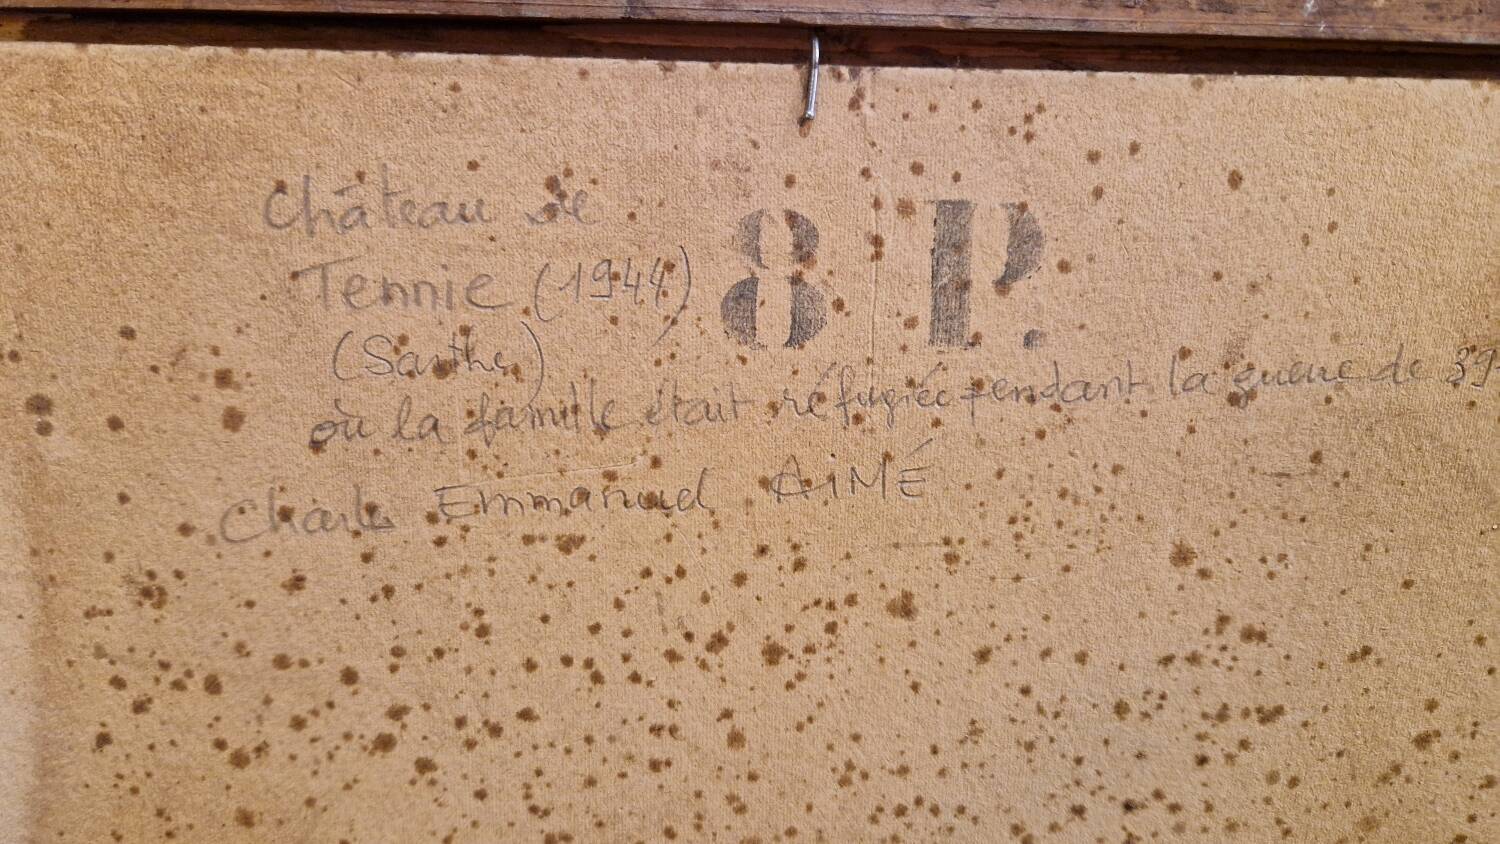 Château de
Tennie (1944)
8 P.
(Sarthe)
où la famille était réfugiée pendant la guerre de 39-
Charles Emmanuel AiMÉ